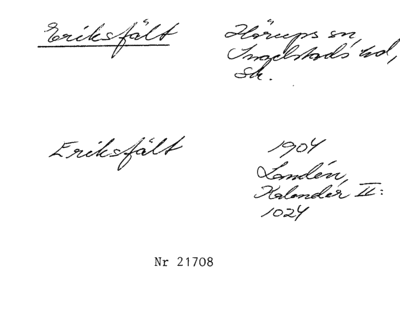 Eriksfält Hörups sn,
Ingelstads hd,
Sk.
Eriksfält 1904
Landén,
Kalender II:
1024
Nr 21708